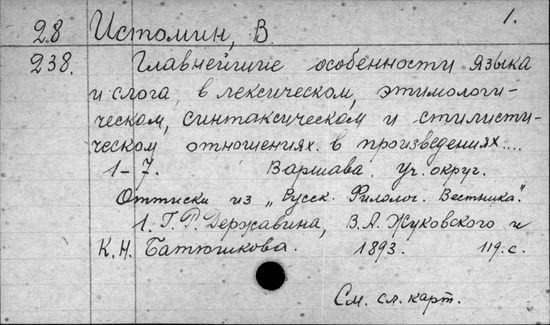 1.
28 Истомин, В.
238. Главнейшие особенности языка
и слога, в лексическом, этимологи-
ческом, синтаксическом и стилисти-
ческом отношениях. в произведениях....
1-7. Варшава. Уч. округ.
Оттиски из „Русск. Филолог. Вестника".
1. Г. Р. Державина, В. А. Жуковского и
К. Н. Батюшкова. 1893. 119. с.
См. сл. карт.